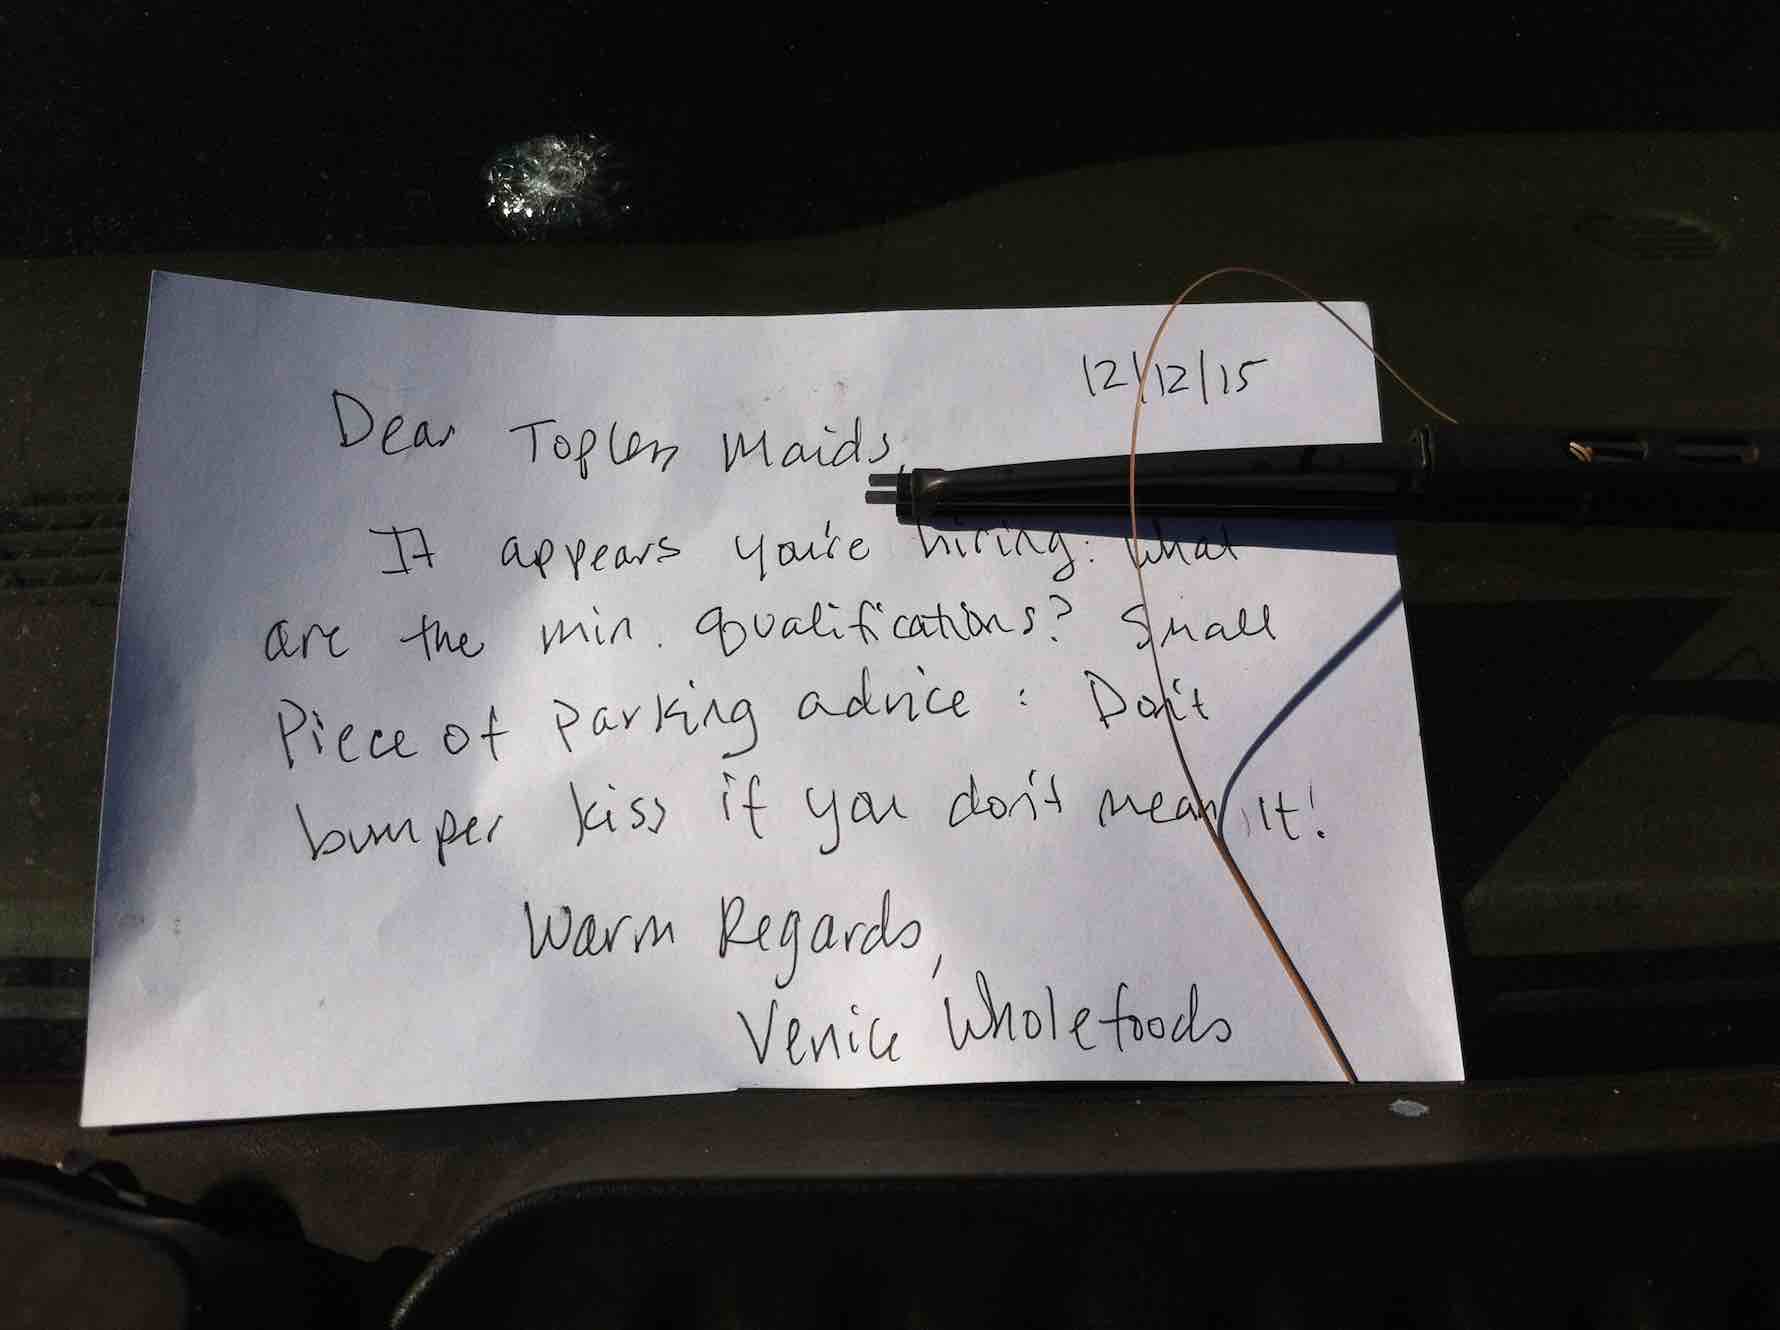 12/12/15
Dear Topless Maids,
It appears you're hiring. What
are the min. qualifications? Small
Piece of Parking advice : Don't
bumper kiss if you don't mean it!
Warm Regards,
Venice Wholefoods